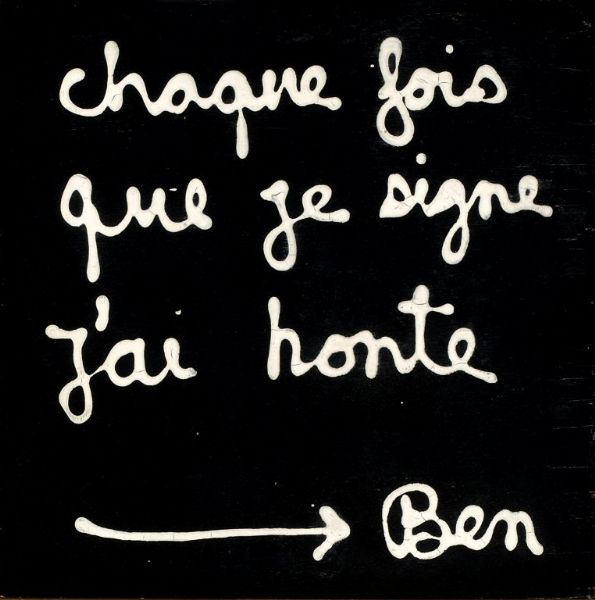 chaque fois
que je signe
j'ai honte
Ben